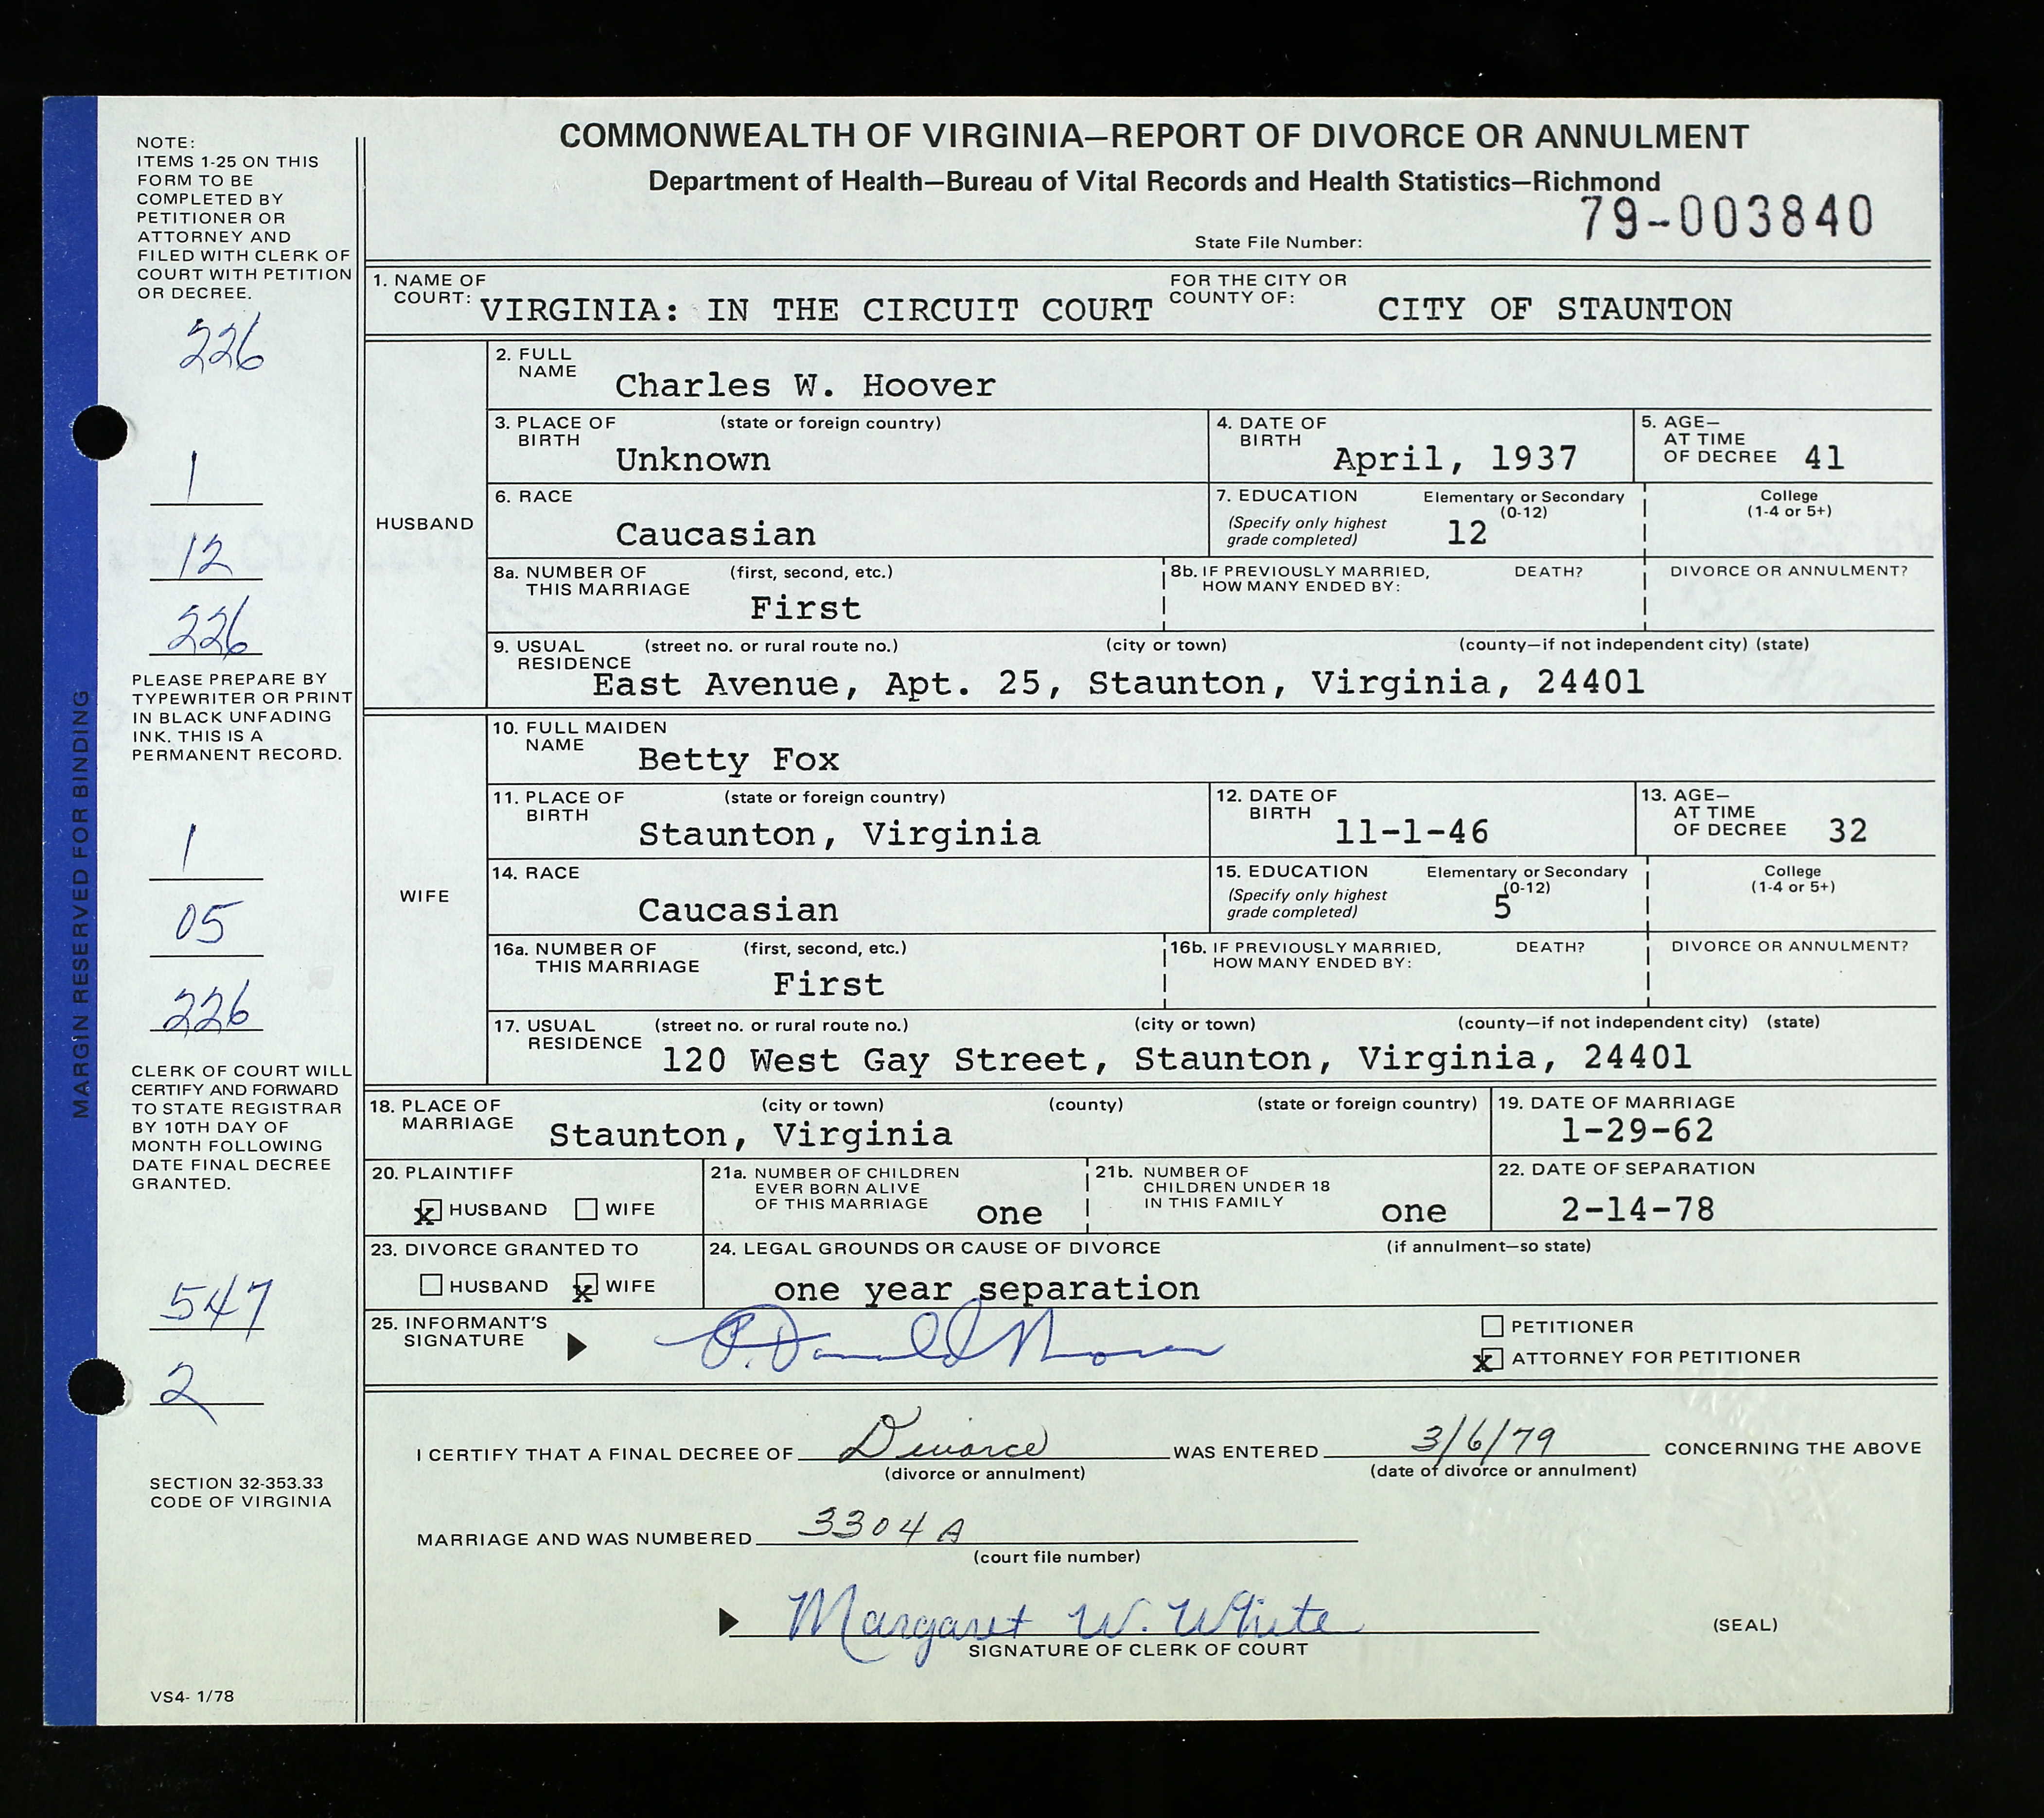 COMMONWEALTH OF VIRGINIA—REPORT OF DIVORCE OR ANNULMENT
Department of Health—Bureau of Vital Records and Health Statistics—Richmond
State File Number: 79-003840
NOTE:
ITEMS 1-25 ON THIS
FORM TO BE
COMPLETED BY
PETITIONER OR
ATTORNEY AND
FILED WITH CLERK OF
COURT WITH PETITION
OR DECREE.
226
1
12
226
PLEASE PREPARE BY
TYPEWRITER OR PRINT
IN BLACK UNFADING
INK. THIS IS A
PERMANENT RECORD.
1
05
226
CLERK OF COURT WILL
CERTIFY AND FORWARD
TO STATE REGISTRAR
BY 10TH DAY OF
MONTH FOLLOWING
DATE FINAL DECREE
GRANTED.
547
2
SECTION 32-353.33
CODE OF VIRGINIA
VS4- 1/78
MARGIN RESERVED FOR BINDING
1. NAME OF COURT: VIRGINIA: IN THE CIRCUIT COURT FOR THE CITY OR COUNTY OF: CITY OF STAUNTON
HUSBAND
2. FULL NAME Charles W. Hoover
3. PLACE OF BIRTH (state or foreign country) Unknown
4. DATE OF BIRTH April, 1937
5. AGE— AT TIME OF DECREE 41
6. RACE Caucasian
7. EDUCATION (Specify only highest grade completed) Elementary or Secondary (0-12) 12 College (1-4 or 5+)
8a. NUMBER OF THIS MARRIAGE (first, second, etc.) First
8b. IF PREVIOUSLY MARRIED, HOW MANY ENDED BY: DEATH? DIVORCE OR ANNULMENT?
9. USUAL RESIDENCE (street no. or rural route no.) (city or town) (county—if not independent city) (state)
East Avenue, Apt. 25, Staunton, Virginia, 24401
WIFE
10. FULL MAIDEN NAME Betty Fox
11. PLACE OF BIRTH (state or foreign country) Staunton, Virginia
12. DATE OF BIRTH 11-1-46
13. AGE— AT TIME OF DECREE 32
14. RACE Caucasian
15. EDUCATION (Specify only highest grade completed) Elementary or Secondary (0-12) 5 College (1-4 or 5+)
16a. NUMBER OF THIS MARRIAGE (first, second, etc.) First
16b. IF PREVIOUSLY MARRIED, HOW MANY ENDED BY: DEATH? DIVORCE OR ANNULMENT?
17. USUAL RESIDENCE (street no. or rural route no.) (city or town) (county—if not independent city) (state)
120 West Gay Street, Staunton, Virginia, 24401
18. PLACE OF MARRIAGE (city or town) (county) (state or foreign country) Staunton, Virginia
19. DATE OF MARRIAGE 1-29-62
20. PLAINTIFF x HUSBAND WIFE
21a. NUMBER OF CHILDREN EVER BORN ALIVE OF THIS MARRIAGE one
21b. NUMBER OF CHILDREN UNDER 18 IN THIS FAMILY one
22. DATE OF SEPARATION 2-14-78
23. DIVORCE GRANTED TO HUSBAND x WIFE
24. LEGAL GROUNDS OR CAUSE OF DIVORCE (if annulment—so state) one year separation
25. INFORMANT'S SIGNATURE Donald
PETITIONER
x ATTORNEY FOR PETITIONER
I CERTIFY THAT A FINAL DECREE OF Divorce WAS ENTERED 3/6/79 CONCERNING THE ABOVE
(divorce or annulment) (date of divorce or annulment)
MARRIAGE AND WAS NUMBERED 3304 A
(court file number)
Margaret W. White
SIGNATURE OF CLERK OF COURT
(SEAL)